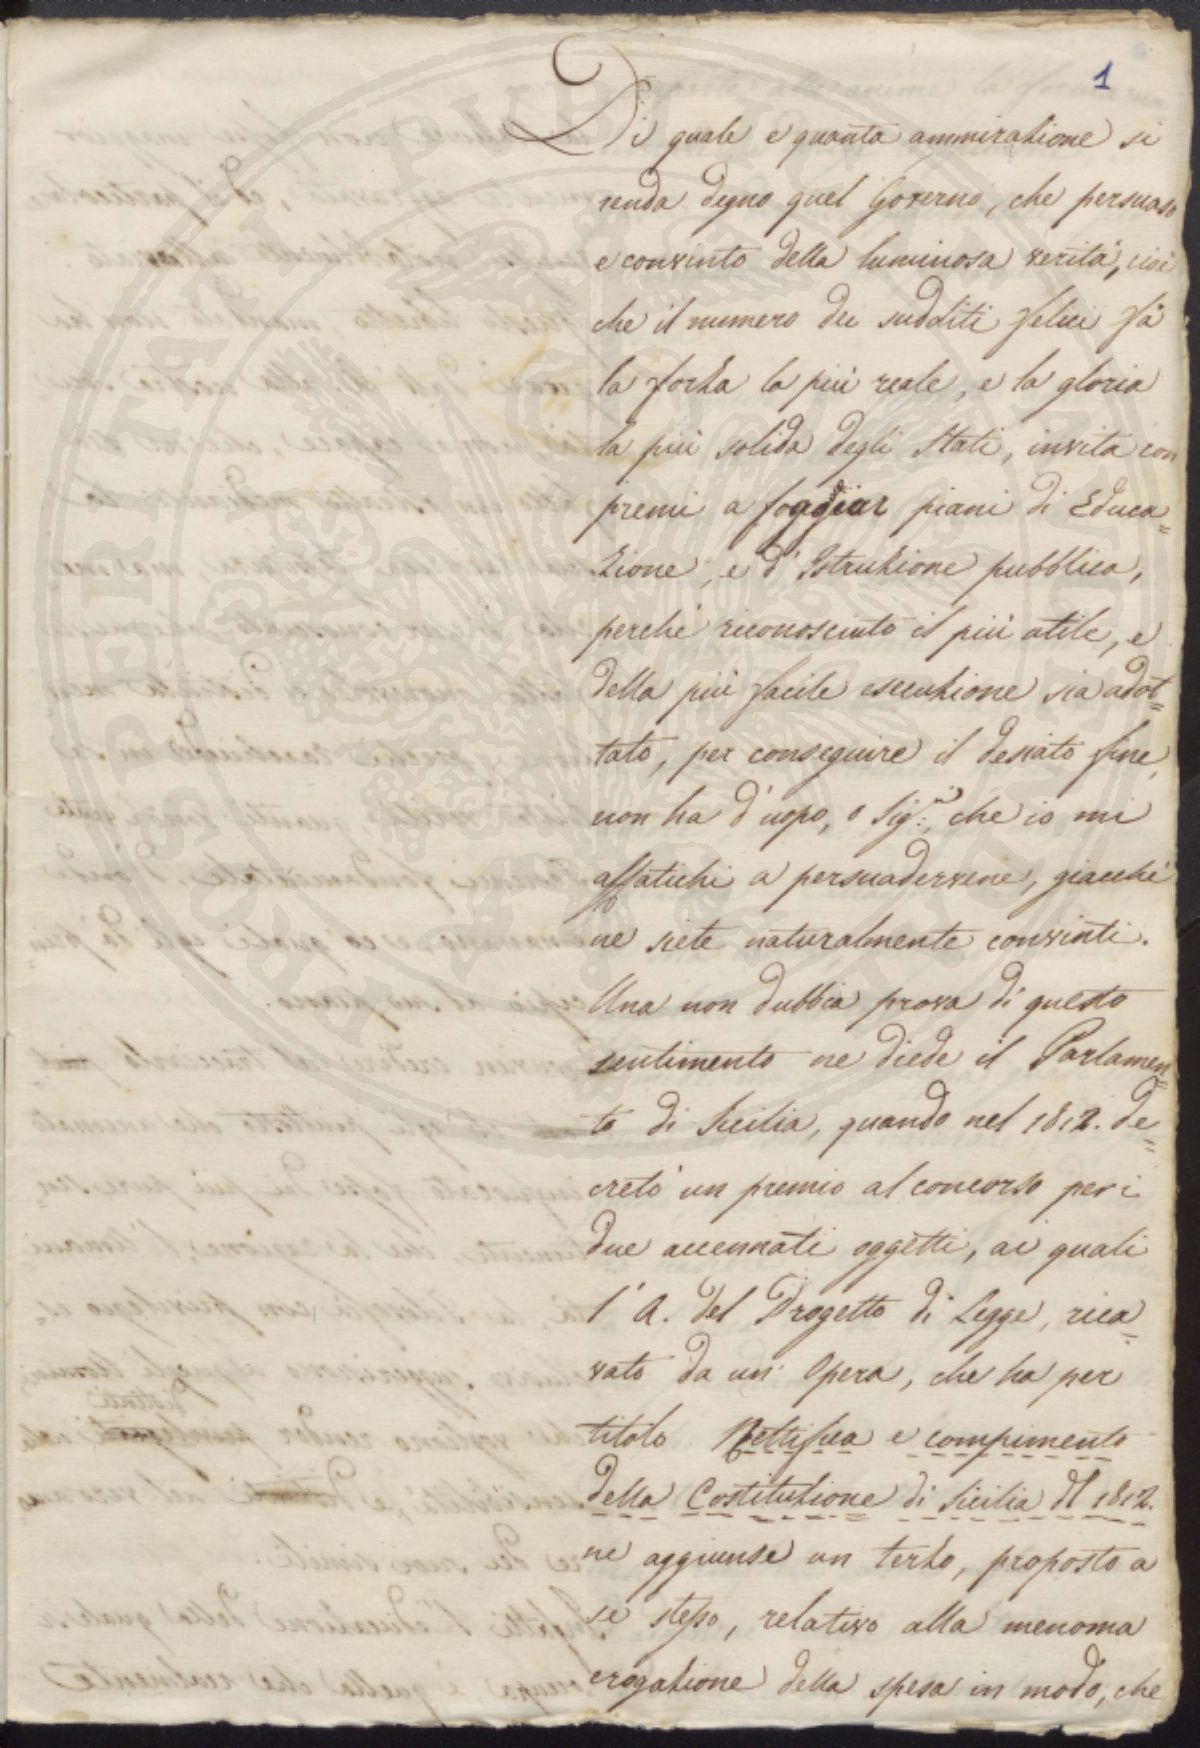 1
Di quale e quanta ammirazione si
renda degno quel Governo, che persuaso
e convinto della luminosa verità, cioè
che il numero dei sudditi felici fà
la forza la più reale, e la gloria
la più solida degli Stati, invita con
premi a foggiar piani di Educa=
zione, e d'Istruzione pubblica,
perchè riconosciuto il più utile, e
della più facile esecuzione sia adot=
tato, per conseguire il desiato fine,
non ha d'uopo, o Sig.ri, che io mi
affatichi a persuadervene, giacchè
ne siete naturalmente convinti.
Una non dubbia prova di questo
sentimento ne diede il Parlamen=
to di Sicilia, quando nel 1812. de=
cretò un premio al concorso per i
due accennati oggetti, ai quali
l'A. del Progetto di Legge, rica=
vato da un' Opera, che ha per
titolo Rettifica e compimento
della Costituzione di Sicilia del 1812.
ne aggiunse un terzo, proposto a
se stesso, relativo alla menoma
erogazione della spesa in modo, che